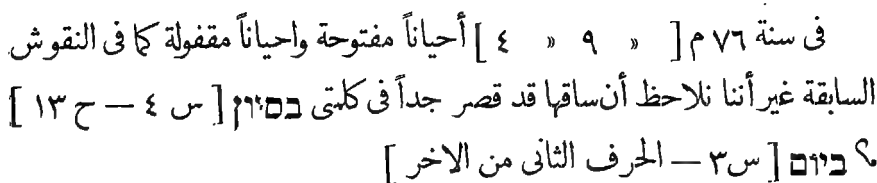 فى سنة ٧٦ م [ » ٩ » ٤ ] أحياناً مفتوحة واحياناً مقفولة كما فى النقوش
السابقة غير أننا نلاحظ أن ساقها قد قصر جداً فى كلمتى בסיון [ س ٤ — ح ١٣ ]
ביום [ س ٣ — الحرف الثانى من الاخر ]